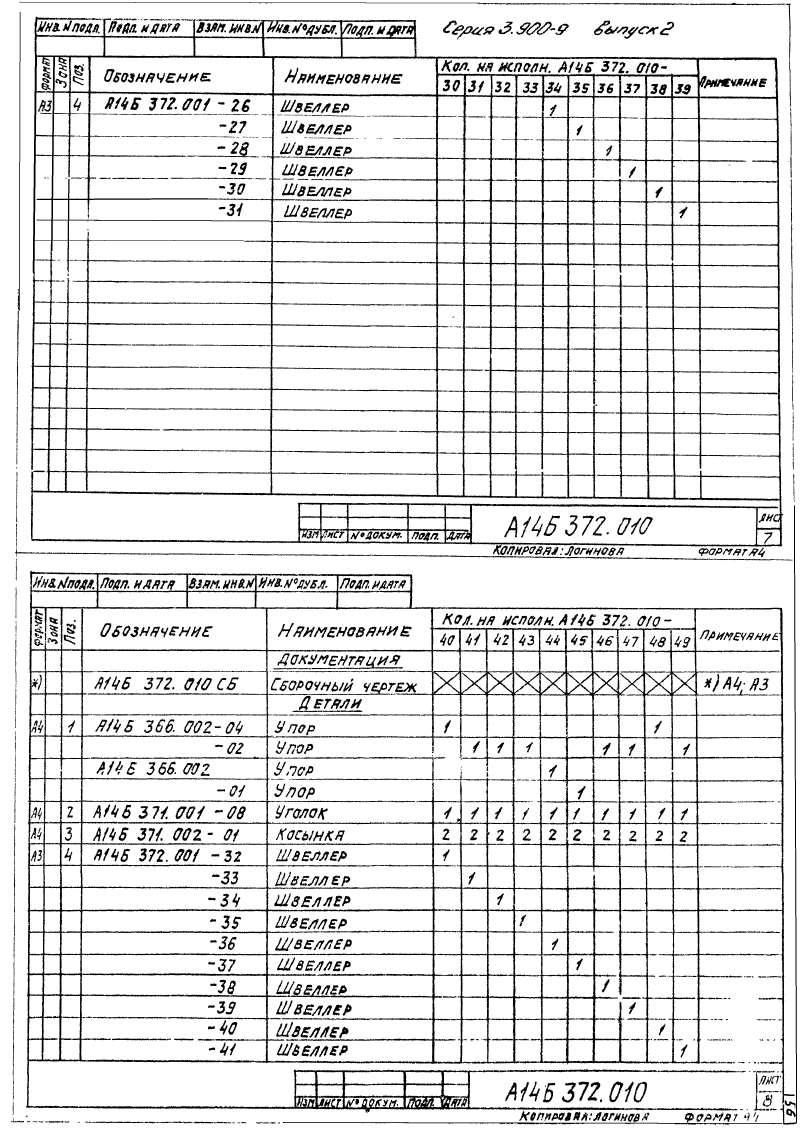 Инв. № подл. Подп. и дата Взам. инв.№ Инв.№ дубл. Подп. и дата Серия 3.900-9 Выпуск 2
Формат Зона Поз. Обозначение Наименование Кол. на исполн. А14Б 372.010- Примечание
30 31 32 33 34 35 36 37 38 39
А3 4 А14Б 372.001 - 26 Швеллер 1
-27 Швеллер 1
-28 Швеллер 1
-29 Швеллер 1
-30 Швеллер 1
-31 Швеллер 1
А14Б 372.010 Лист
7
Изм Лист № докум. Подп. Дата
Копировал: Логинова Формат А4
Инв. № подл. Подп. и дата Взам. инв.№ Инв.№ дубл. Подп. и дата
Формат Зона Поз. Обозначение Наименование Кол. на исполн. А14Б 372.010- Примечание
40 41 42 43 44 45 46 47 48 49
Документация
*) А14Б 372.010 СБ Сборочный чертеж *) А4; А3
Детали
А4 1 А14Б 366.002-04 Упор 1 1
-02 Упор 1 1 1 1 1 1
А14Б 366.002 Упор 1
-01 Упор 1
А4 2 А14Б 371.001 -08 Уголок 1 1 1 1 1 1 1 1 1 1
А4 3 А14Б 371.002 - 01 Косынка 2 2 2 2 2 2 2 2 2 2
А3 4 А14Б 372.001 -32 Швеллер 1
-33 Швеллер 1
-34 Швеллер 1
-35 Швеллер 1
-36 Швеллер 1
-37 Швеллер 1
-38 Швеллер 1
-39 Швеллер 1
-40 Швеллер 1
-41 Швеллер 1
А14Б 372.010 Лист
8
Изм Лист № докум. Подп. Дата
Копировал: Логинова Формат А4